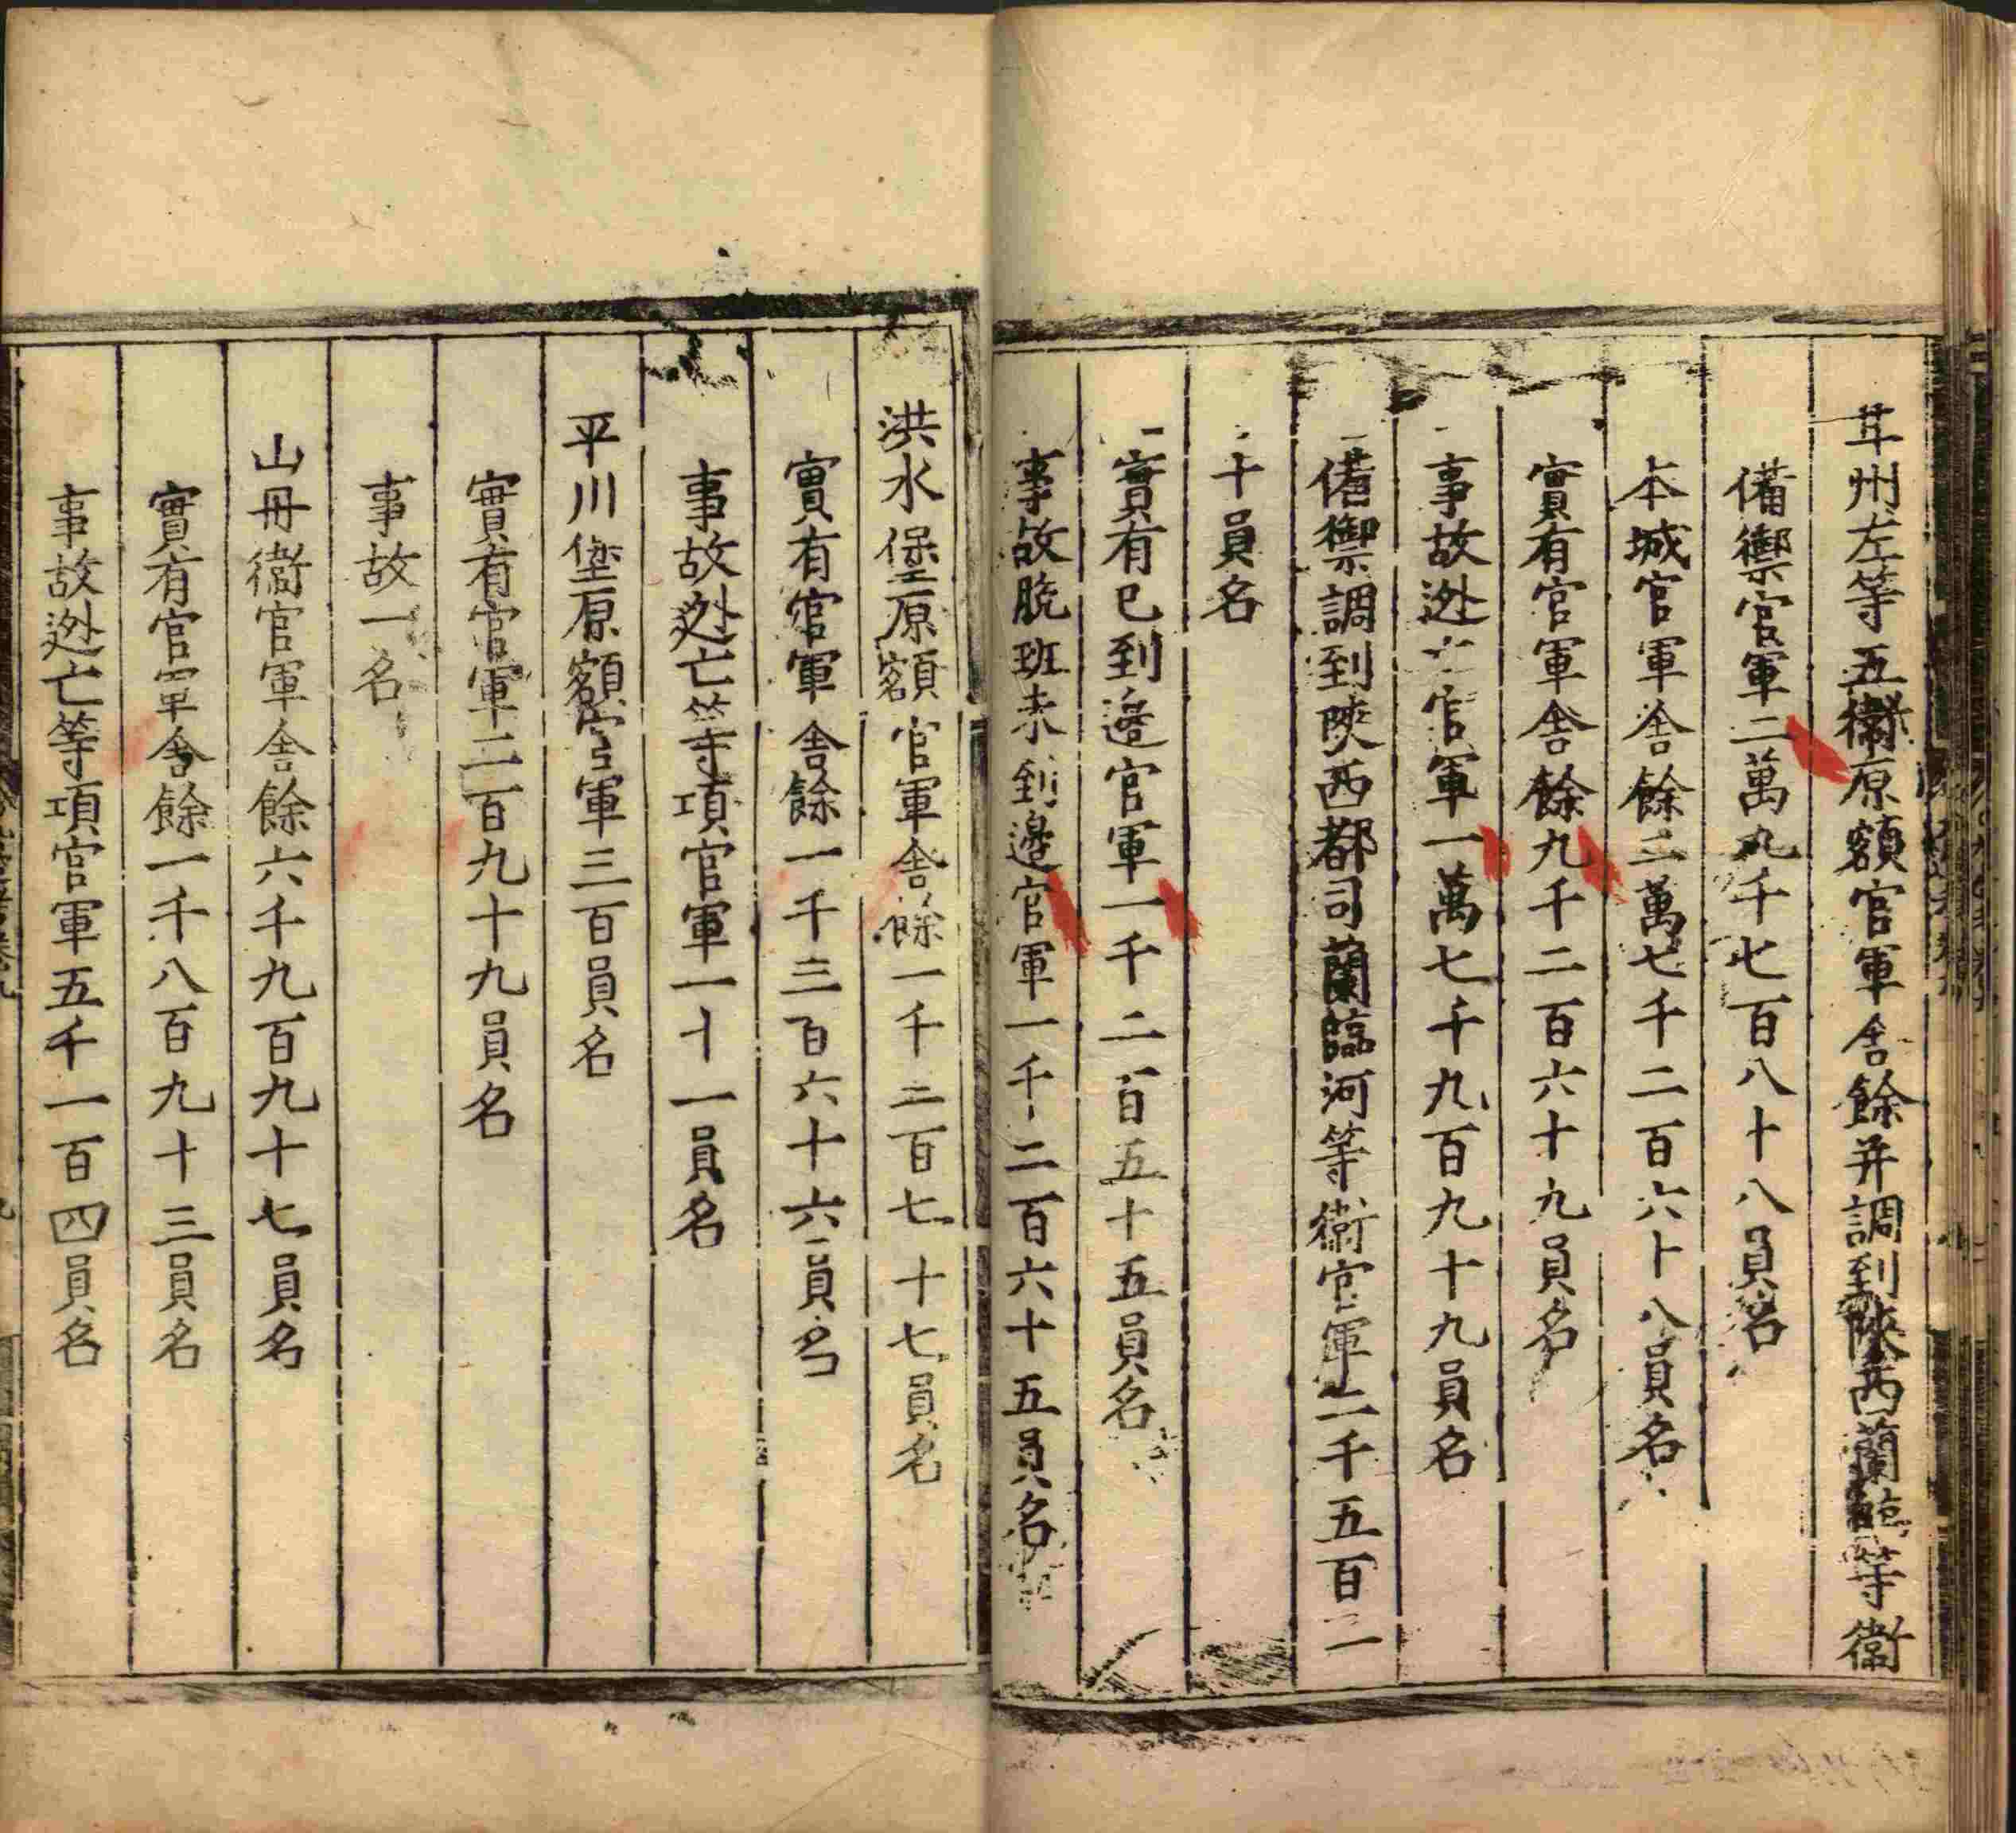 甘州左等五衛原額官軍舍餘并調到陝西蘭臨等衛
備禦官軍二萬九千七百八十八員名
本城官軍舍餘二萬七千二百六十八員名
實有官軍舍餘九千二百六十九員名
事故迯亡官軍一萬七千九百九十九員名
備禦調到陝西都司蘭臨河等衛官軍二千五百二
十員名
實有已到邉官軍一千二百五十五員名
事故脫班未到邉官軍一千二百六十五員名
洪水堡原額官軍舍餘一千三百七十七員名
實有官軍舍餘一千三百六十六員名
事故迯亡等項官軍一十一員名
平川堡原額官軍三百員名
實有官軍二百九十九員名
事故一名
山丹衛官軍舍餘六千九百九十七員名
實有官軍舍餘一千八百九十三員名
事故迯亡等項官軍五千一百四員名